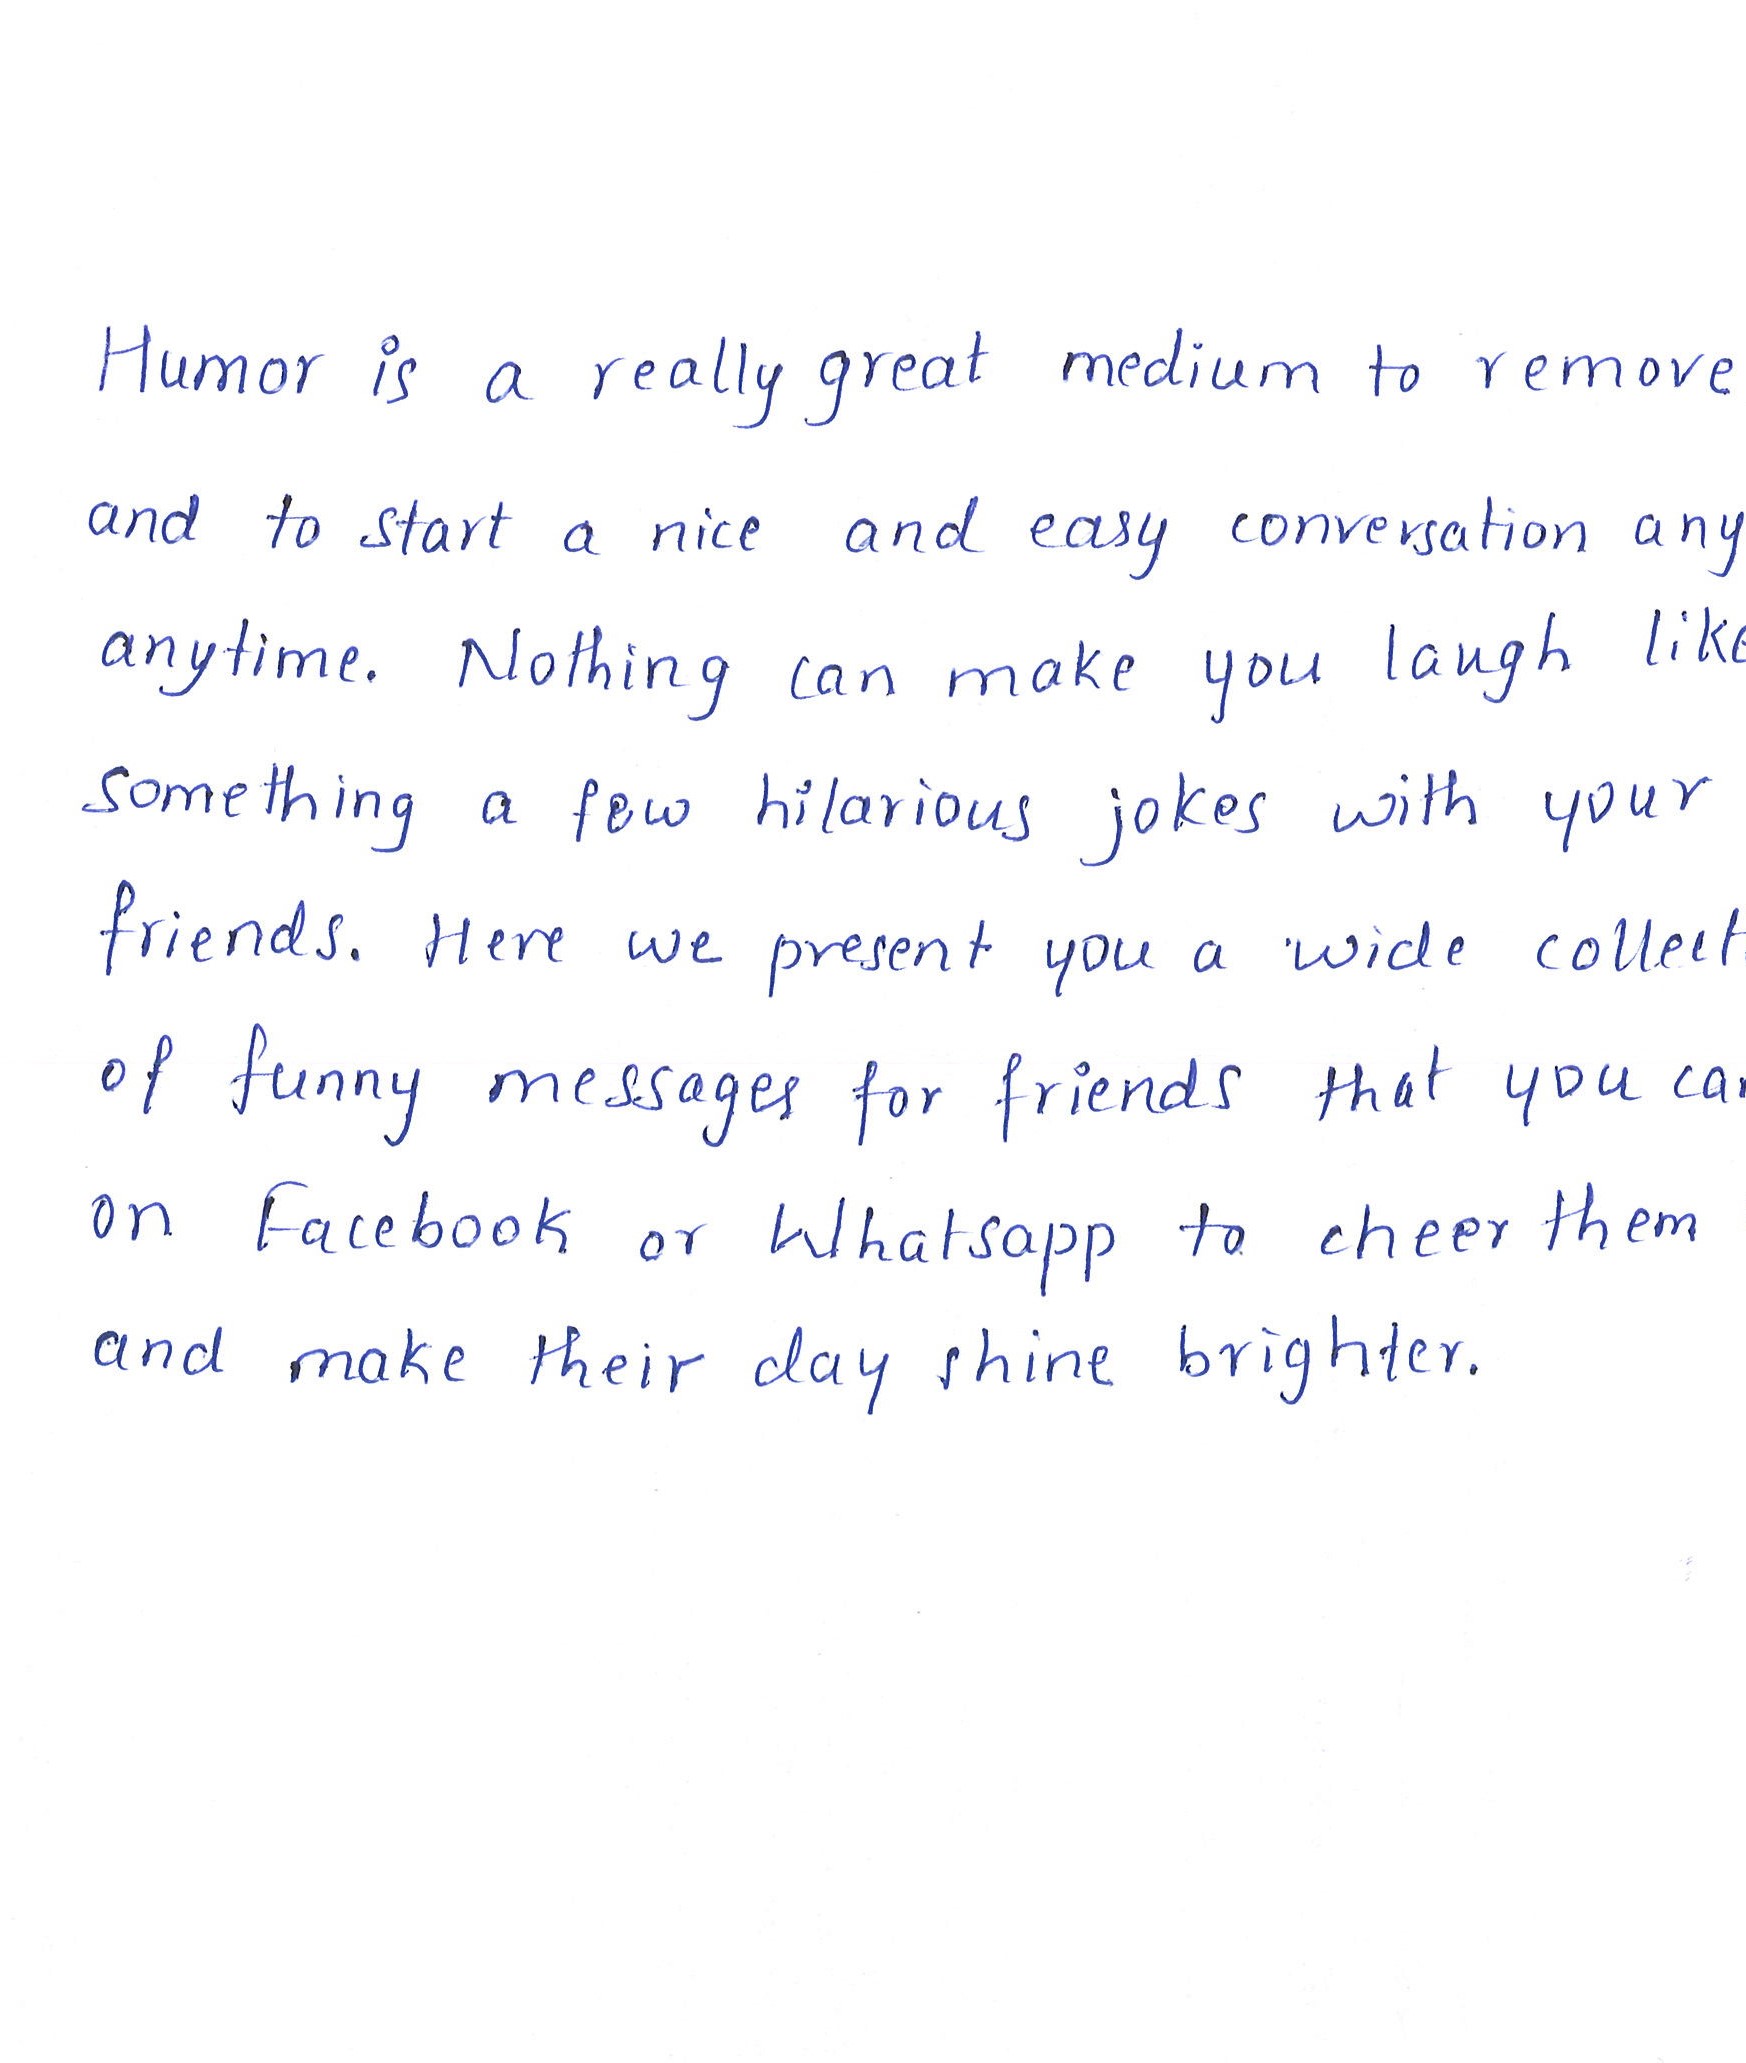 Humor is a really great medium to remove
and to start a nice and easy conversation any
anytime. Nothing can make you laugh like
something a few hilarious jokes with your
friends. Here we present you a wide collect
of funny messages for friends that you can
on Facebook or Whatsapp to cheer them
and make their day shine brighter.